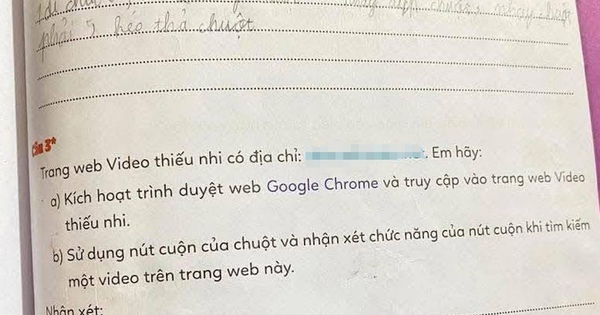 phải, kéo thả chuột
Câu 3*
Trang web Video thiếu nhi có địa chỉ: . Em hãy:
a) Kích hoạt trình duyệt web Google Chrome và truy cập vào trang web Video
thiếu nhi.
b) Sử dụng nút cuộn của chuột và nhận xét chức năng của nút cuộn khi tìm kiếm
một video trên trang web này.
Nhận xét: